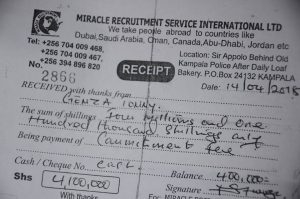 MIRACLE RECRUITMENT SERVICE INTERNATIONAL LTD
We take people abroad to countries like
Dubai, Saudi Arabia, Oman, Canada, Abu-Dhabi, Jordan etc
Tel: +256 704 009 468,
+256 704 009 467,
+256 394 896 820
Location: Sir Appolo Behind Old
Kampala Police After Daily Loaf
Bakery. P.O.Box 24132 KAMPALA
No. 2866
RECEIPT
Date: 14/04/2015
RECEIVED with thanks from
The sum of shillings four millions and one
Hundred thousand shillings only
Being payment of Commitment fee
Cash / Cheque No. cash
Balance 400,000=
Shs 4,100,000/
With thanks
Signature
For: MIRACLE